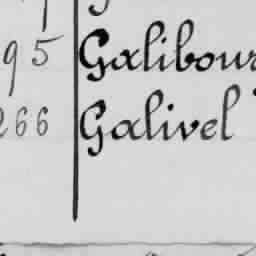 95 Galibour
266 Galivel